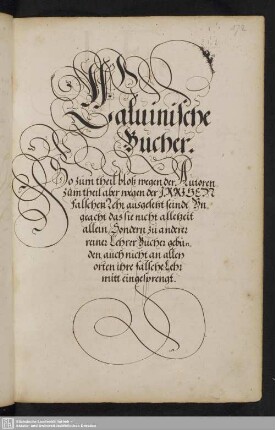 272
Caluinische
Bücher.
So zum theil bloß wegen der Autoren
zum theil aber wegen der IRRISEN
falschen Lehr ausgesetzt seindt. Vn,
geacht das sie nicht allezeit
allein, Sondern zu anderer
reiner Lehrer Bücher gebun,
den, auch nicht an allen
orten ihre falsche Lehr
mitt eingesprengt.